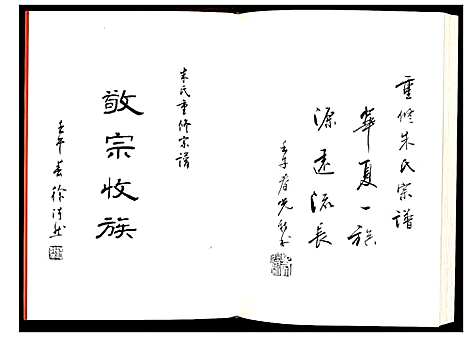 重修朱氏宗谱
華夏一族
源远流长
朱氏重修宗谱
敬宗收族
壬午春徐